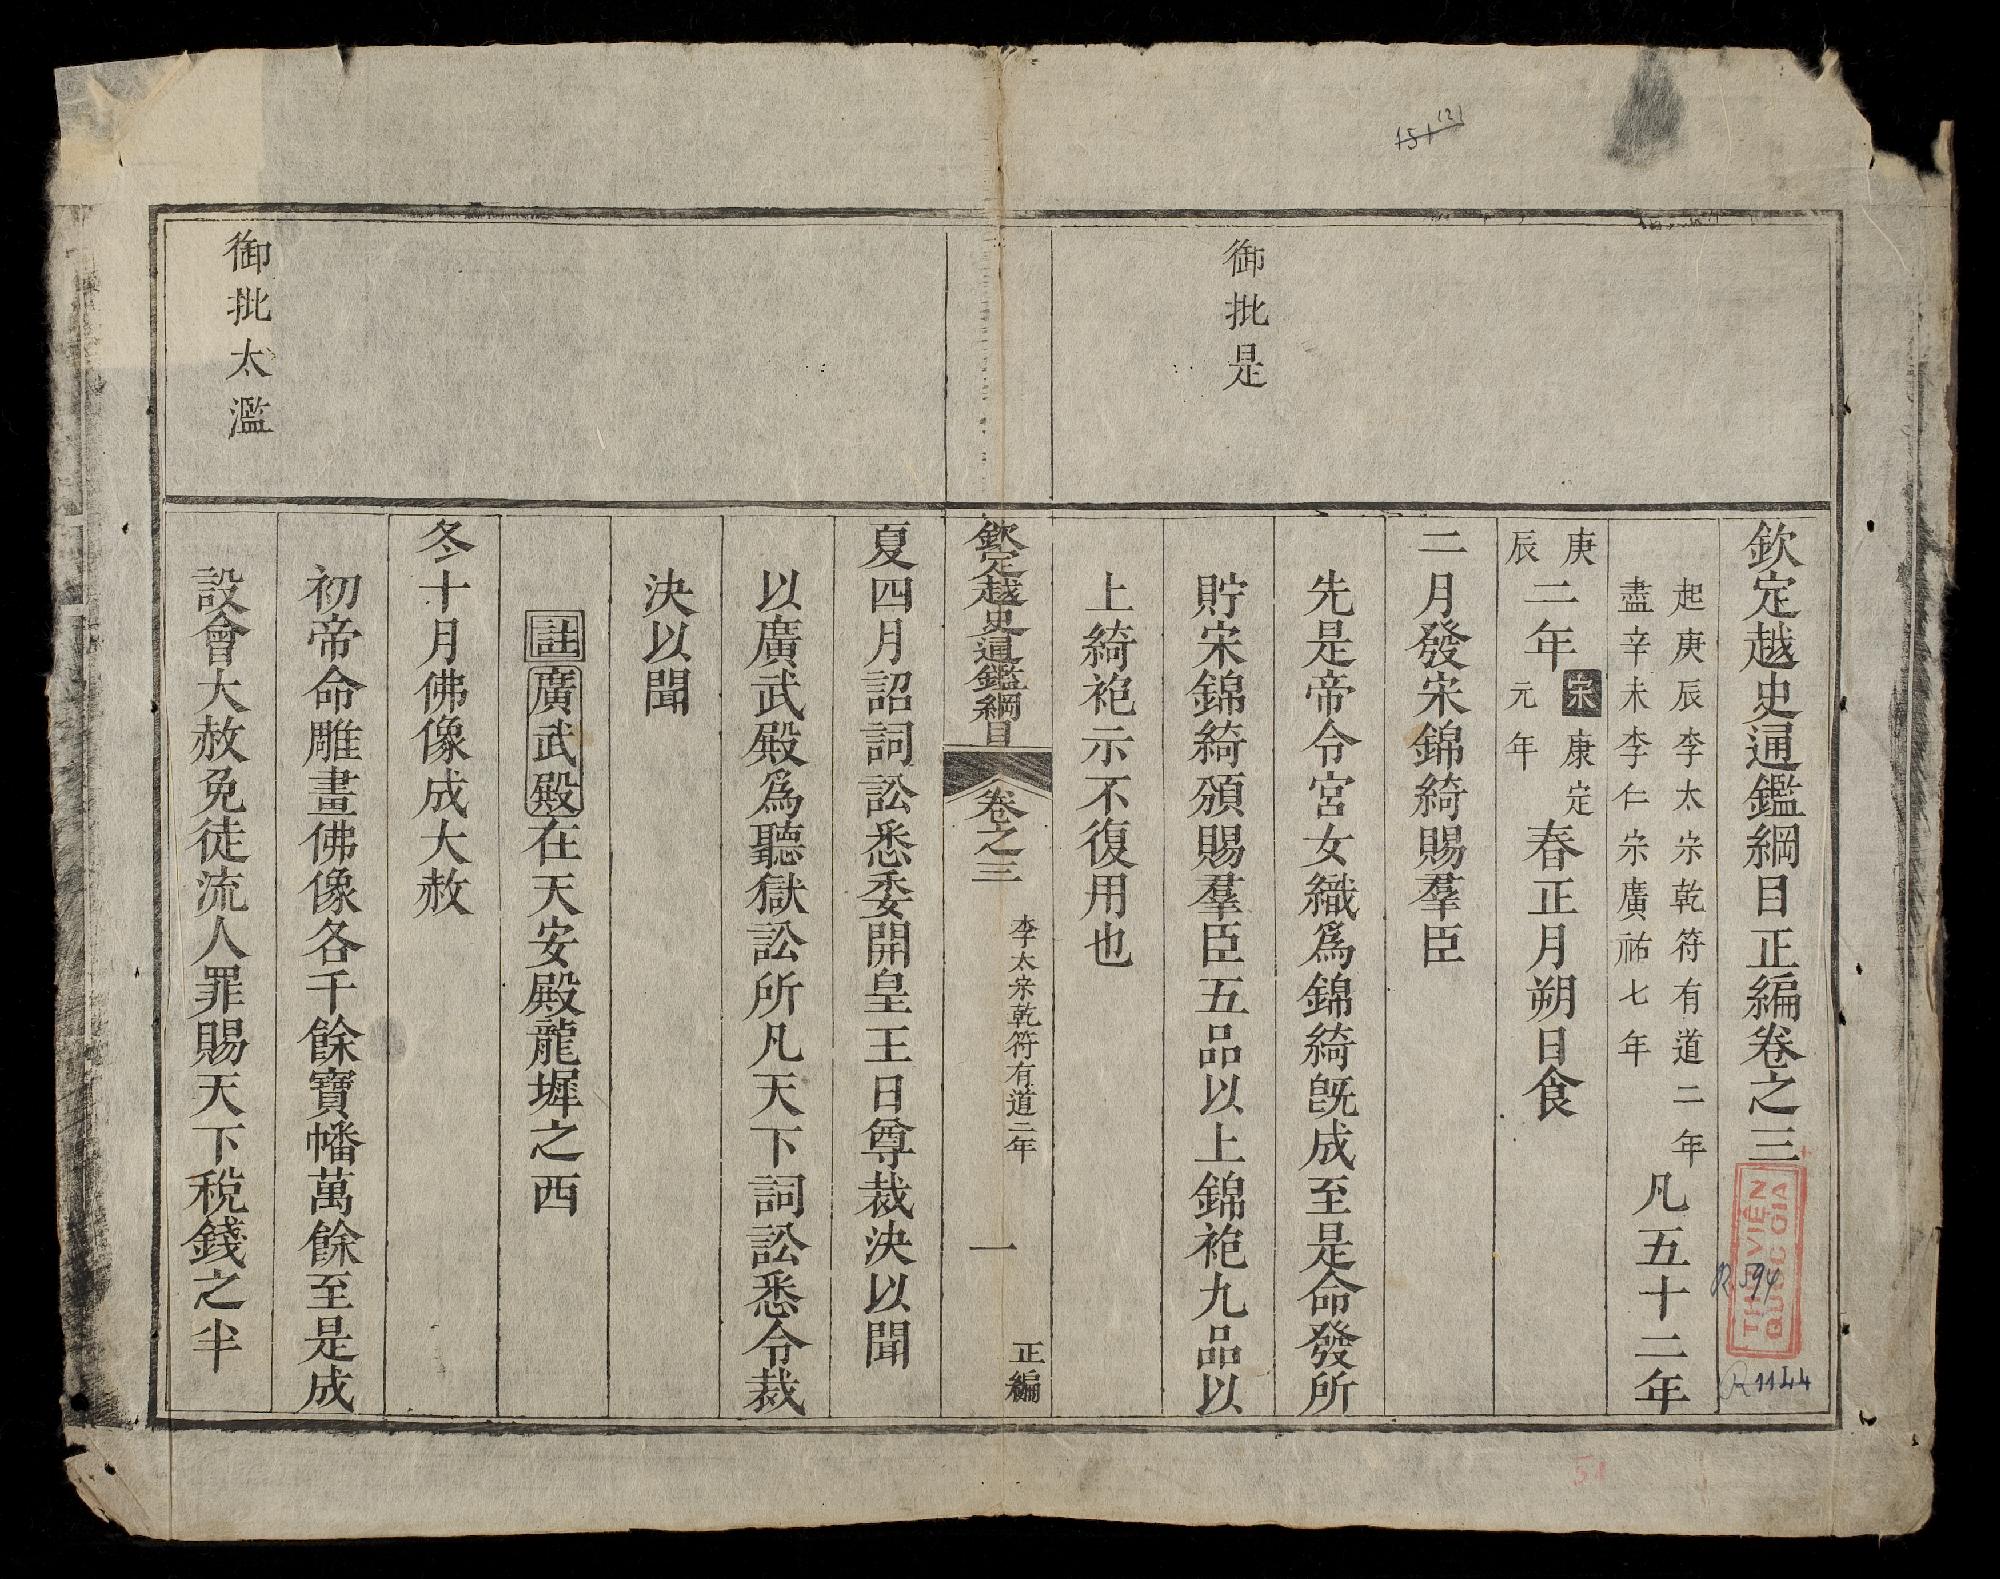 欽定越史通鑑綱目正編卷之三
起庚辰李太宗乾符有道二年
盡辛未李仁宗廣祐七年
凡五十二年
庚辰二年宋康定元年春正月朔日食
二月發宋錦綺賜羣臣
御批是
先是帝令宮女織爲錦綺旣成至是命發所
貯宋錦綺頒賜羣臣五品以上錦袍九品以
上綺袍示不復用也
欽定越史通鑑綱目
卷之三
李太宗乾符有道二年
一
正編
夏四月詔詞訟悉委開皇王日尊裁決以聞
以廣武殿爲聽獄訟所凡天下詞訟悉令裁
決以聞
註廣武殿在天安殿龍墀之西
冬十月佛像成大赦
初帝命雕畫佛像各千餘寶幡萬餘至是成
御批太濫
設會大赦免徒流人罪賜天下稅錢之半
THƯ VIỆN
QUỐC GIA
R 594
R 1144
151
121
51